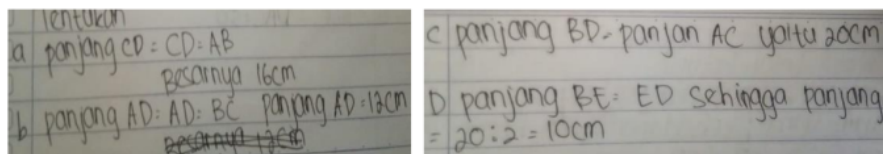 Tentukan
a panjang CD = CD = AB
Besarnya 16cm
b panjang AD = AD = BC panjang AD = 12cm
Besarnya 12cm
C panjang BD = panjan AC yaitu 20cm
D panjang BE = ED sehingga panjang
= 20 : 2 = 10cm